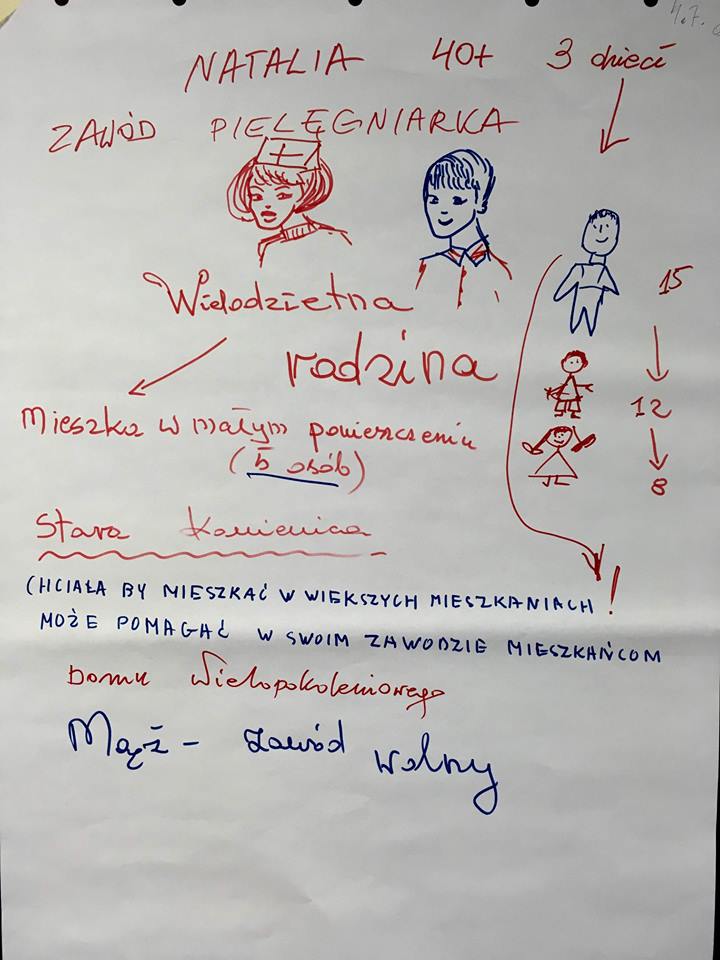 NATALIA 40+ 3 dzieci
ZAWÓD PIELĘGNIARKA
Wielodzietna
rodzina
15
12
8
Mieszka w małym pomieszczeniu
(5 osób)
Stara Kamienica
CHCIAŁA BY MIESZKAĆ W WIEKSZYCH MIESZKANIACH !
MOŻE POMAGAĆ W SWOIM ZAWODZIE MIESZKAŃCOM
Domu Wielopokoleniowego
Mąż - zawód wolny